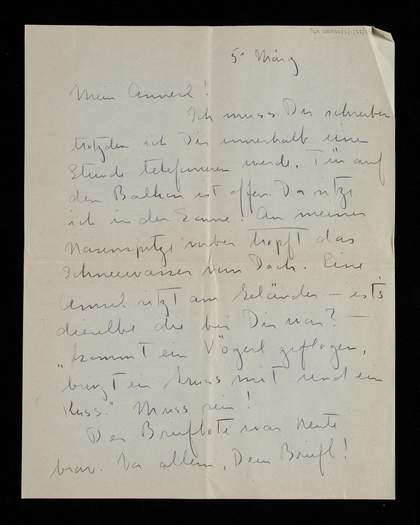 5. März
Mein Annerl!
Ich muss Dir schreiben
trotzdem ich Dir innerhalb einer
Stunde telefonieren werde. Tür auf
den Balkon ist offen. Da sitze
ich in der Sonne! An meiner
Nasenspitze vorbei tropft das
Schneewasser vom Dach. Eine
Amsel sitzt am Geländer – ist's
dieselbe die bei Dir war? –
„kommt ein Vögerl geflogen,
bringt ein Gruss mit und ein
Kuss." Muss sein!
Der Briefbote war heute
brav. Vor allem, Dein Briefl!